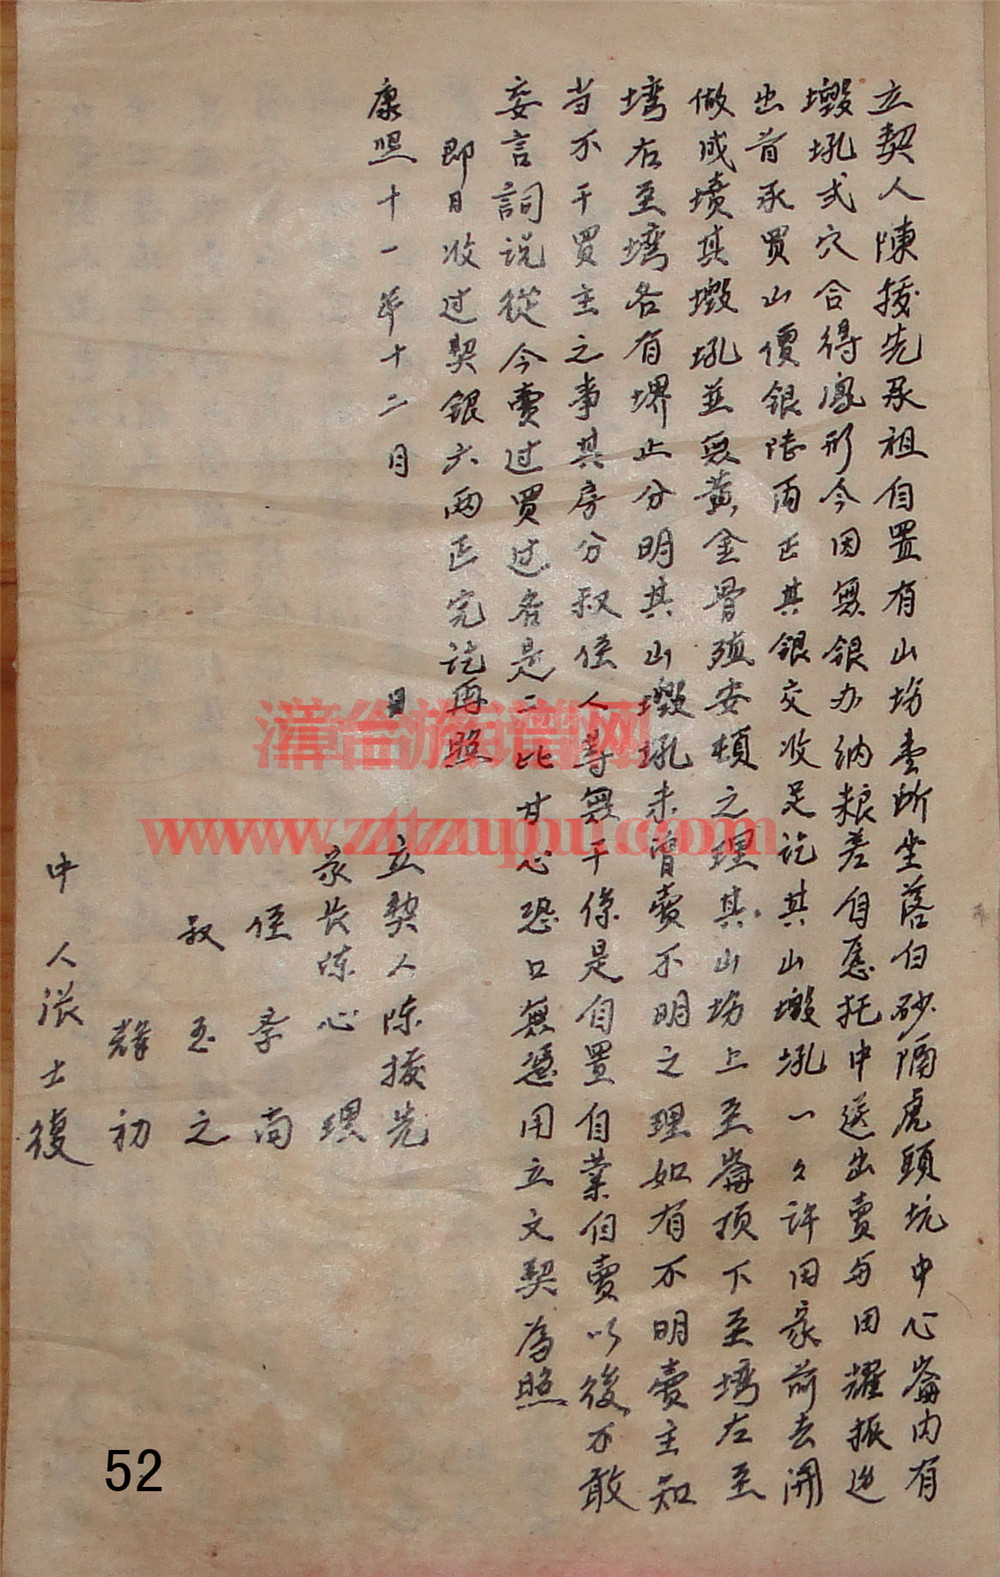 立契人陳援先承祖自置有山场壹所坐落白砂隔虎頭坑中心崙内有
墩坬弍穴合得鳳形今因無銀办納粮差自愿托中送出賣与田耀振边
出首承買山價銀陸両正其銀交收足訖其山墩坬一久许田家前去開
做成墳其墩坬並無黄金骨殖安頓之理其山场上至崙頂下至塆左至
塆右至塆各有堺止分明其山墩坬未曾賣不明之理如有不明賣主知
当不干買主之事其房分叔侄人等無干係是自置自業自賣以後不敢
妄言詞说從今賣过買过各是二比甘心恐口無憑用立文契為照
即日收过契銀六两正完讫再照
康熙十一年十二月 日 立契人陈援先
家长陈心理
侄孝尚
叔玉之
輝初
中人张士復
漳台族谱网
www.ztzupu.com
52